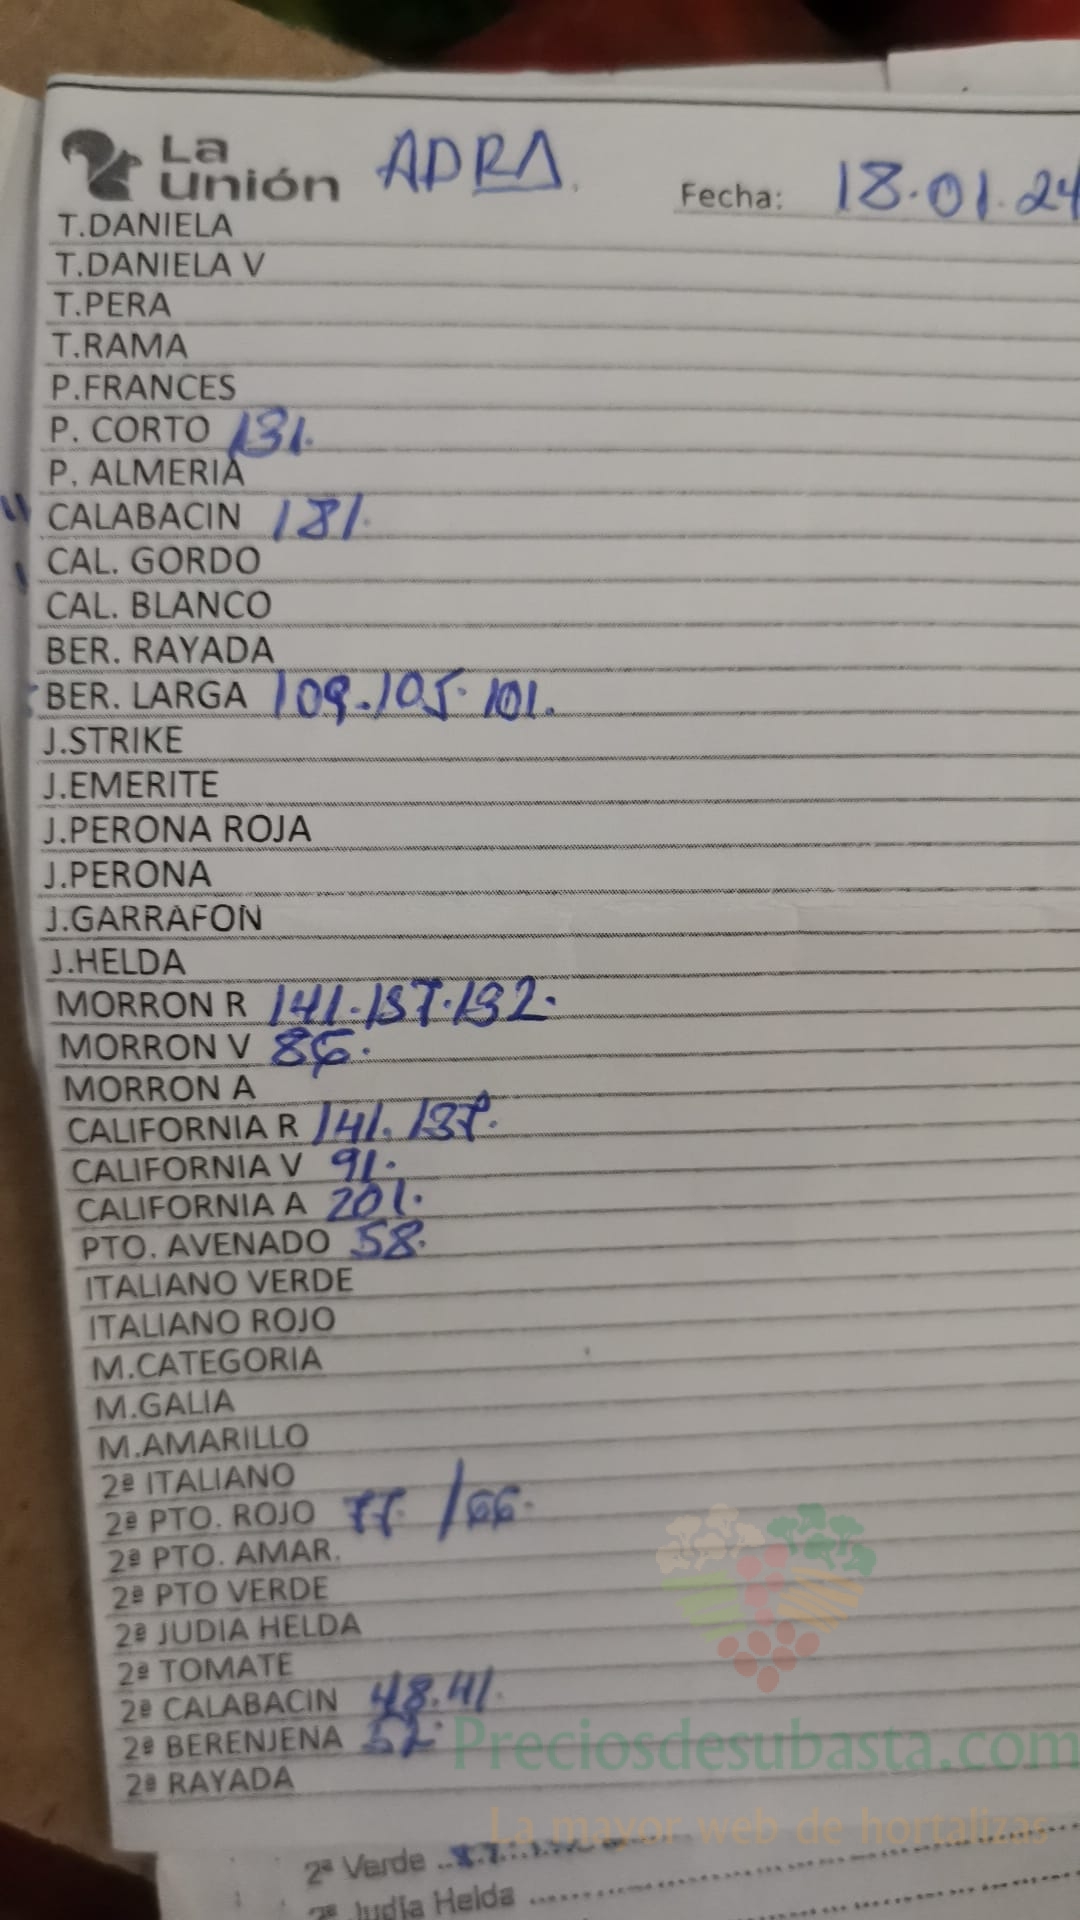 La unión ADRA. Fecha: 18.01.24
T.DANIELA
T.DANIELA V
T.PERA
T.RAMA
P.FRANCES
P. CORTO 131.
P. ALMERIA
CALABACIN 181.
CAL. GORDO
CAL. BLANCO
BER. RAYADA
BER. LARGA 109.105.101.
J.STRIKE
J.EMERITE
J.PERONA ROJA
J.PERONA
J.GARRAFON
J.HELDA
MORRON R 141.137.132.
MORRON V 86.
MORRON A
CALIFORNIA R 141.137.
CALIFORNIA V 91.
CALIFORNIA A 201.
PTO. AVENADO 58.
ITALIANO VERDE
ITALIANO ROJO
M.CATEGORIA
M.GALIA
M.AMARILLO
2ª ITALIANO
2ª PTO. ROJO 77. /66.
2ª PTO. AMAR.
2ª PTO VERDE
2ª JUDIA HELDA
2ª TOMATE
2ª CALABACIN 48.41.
2ª BERENJENA 52.
2ª RAYADA
Preciosdesubasta.com
La mayor web de hortalizas
2ª Verde
2ª Judía Helda